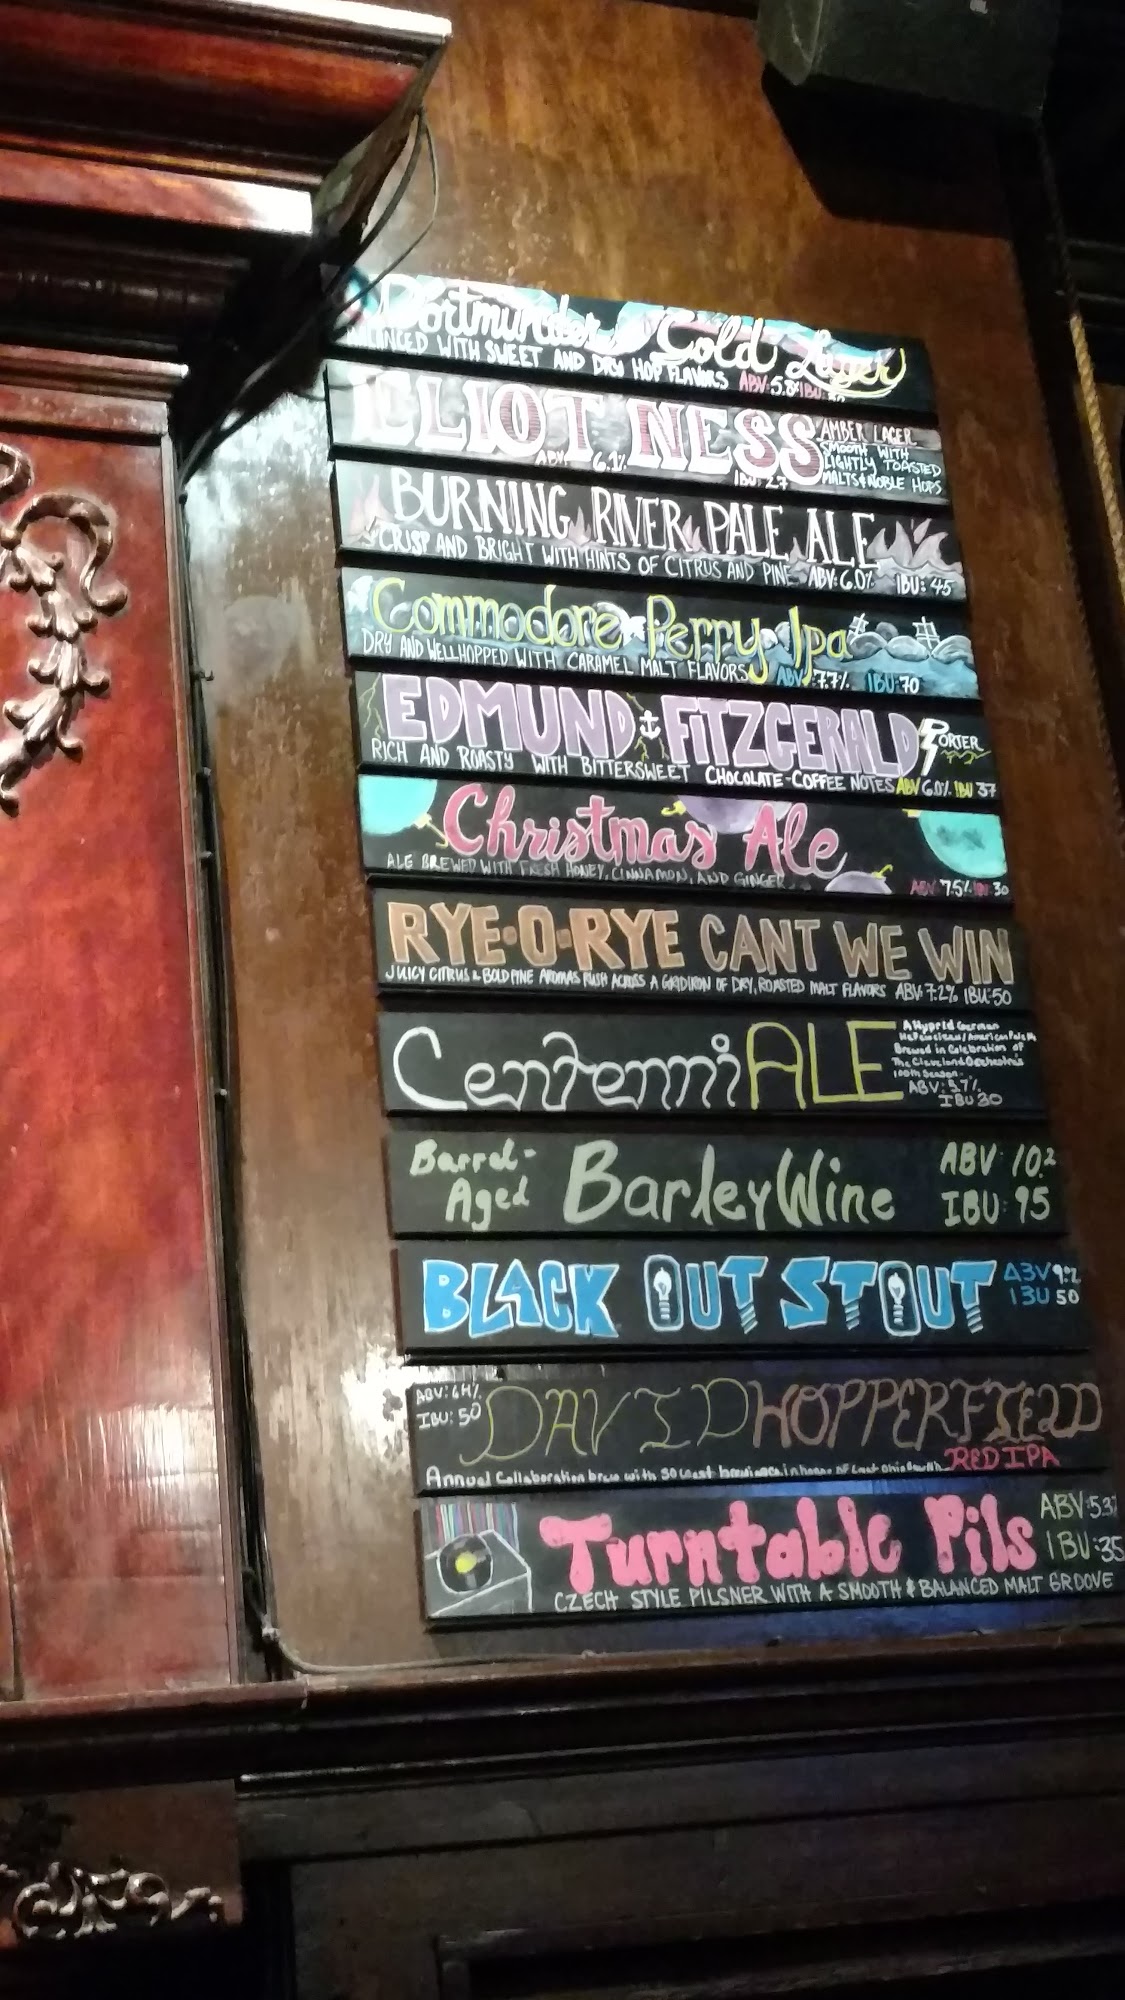 Dortmunder Gold Lager
BALANCED WITH SWEET AND DRY HOP FLAVORS ABV: 5.8% IBU:
ELIOT NESS
AMBER LAGER
SMOOTH WITH
LIGHTLY TOASTED
MALTS & NOBLE HOPS
ABV: 6.1% IBU: 27
BURNING RIVER PALE ALE
CRISP AND BRIGHT WITH HINTS OF CITRUS AND PINE ABV: 6.0% IBU: 45
Commodore Perry Ipa
DRY AND WELLHOPPED WITH CARAMEL MALT FLAVORS ABV: 7.7% IBU: 70
EDMUND FITZGERALD PORTER
RICH AND ROASTY WITH BITTERSWEET CHOCOLATE-COFFEE NOTES ABV 6.0% IBU 37
Christmas Ale
ALE BREWED WITH FRESH HONEY, CINNAMON, AND GINGER ABV: 7.5% IBU: 30
RYE-O-RYE CANT WE WIN
JUICY CITRUS & BOLD PINE AROMAS RUSH ACROSS A GRIDIRON OF DRY, ROASTED MALT FLAVORS ABV: 7.2% IBU: 50
CentenniALE
A Hybrid German
Hefeweizen/American Pale Ale
Brewed in Celebration of
The Cleveland Orchestra's
100th Season
ABV: 5.7%
IBU 30
Barrel-
Aged
BarleyWine
ABV: 10.2
IBU: 95
BLACK OUT STOUT
ABV 9%
IBU 50
ABV: 6.4%
IBU: 50
DAVID HOPPERFIELD
RED IPA
Annual Collaboration brew with
Turntable Pils
ABV: 5.3%
IBU: 35
CZECH STYLE PILSNER WITH A SMOOTH & BALANCED MALT GROOVE